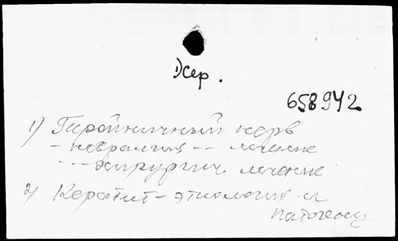 Жер.
658942
1) Тройничный нерв
- невралгия -- лечение
-- -- хирургич. лечение
2) Кератит - этиология и
патогенез